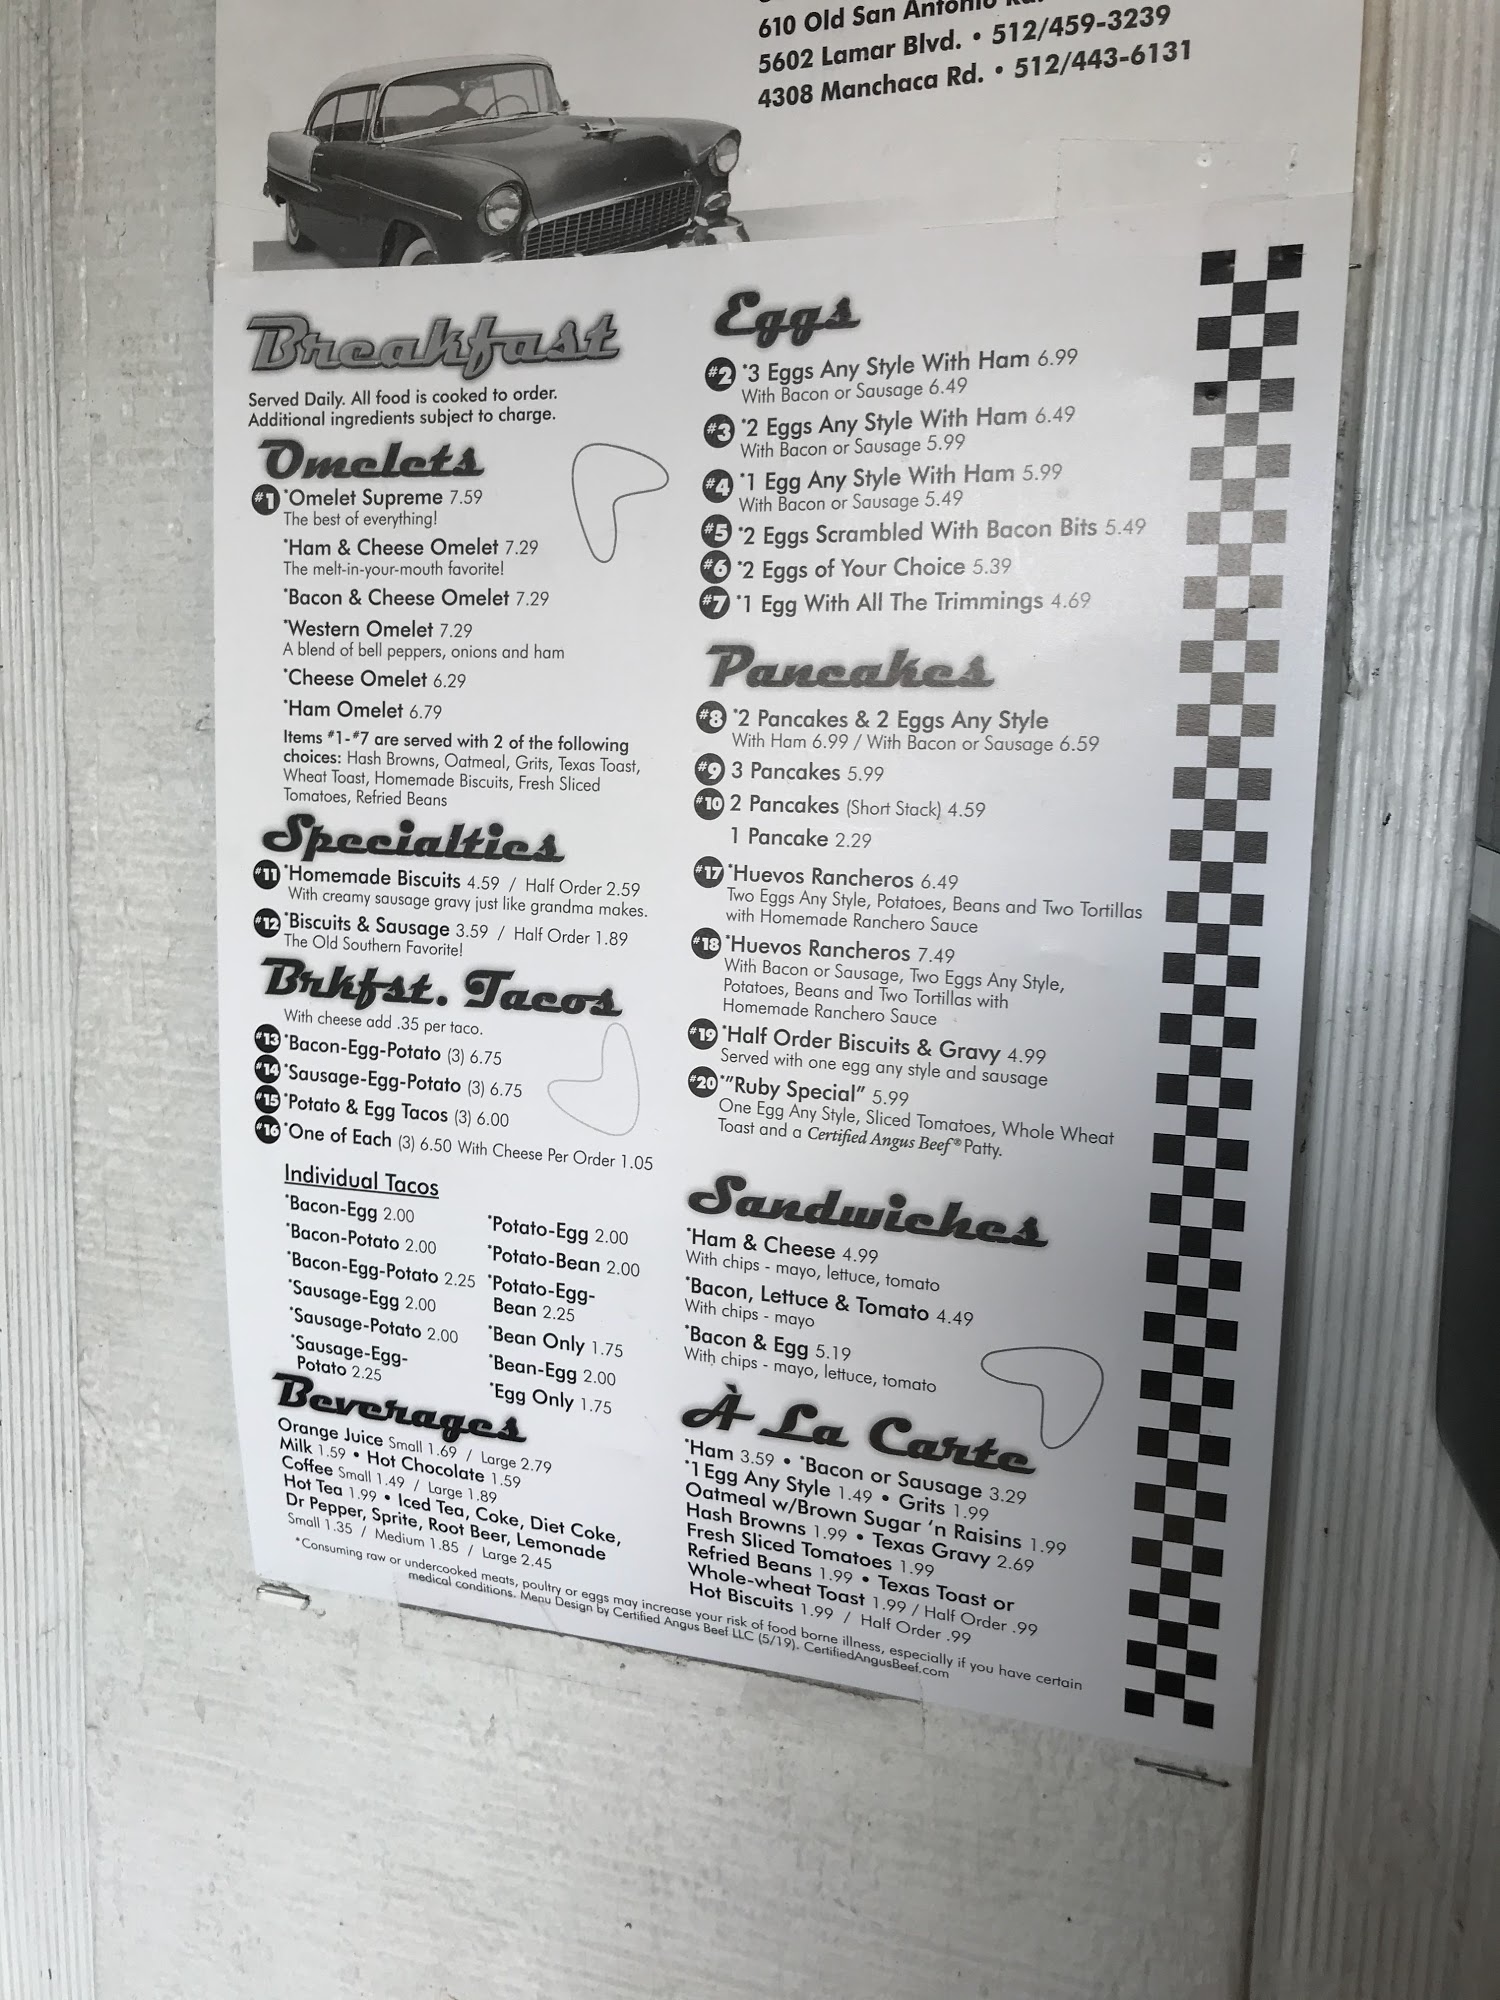 610 Old San Antonio
5602 Lamar Blvd. • 512/459-3239
4308 Manchaca Rd. • 512/443-6131
Breakfast
Served Daily. All food is cooked to order.
Additional ingredients subject to charge.
Omelets
#1 *Omelet Supreme 7.59
The best of everything!
*Ham & Cheese Omelet 7.29
The melt-in-your-mouth favorite!
*Bacon & Cheese Omelet 7.29
*Western Omelet 7.29
A blend of bell peppers, onions and ham
*Cheese Omelet 6.29
*Ham Omelet 6.79
Items #1-#7 are served with 2 of the following
choices: Hash Browns, Oatmeal, Grits, Texas Toast,
Wheat Toast, Homemade Biscuits, Fresh Sliced
Tomatoes, Refried Beans
Specialties
#11 *Homemade Biscuits 4.59 / Half Order 2.59
With creamy sausage gravy just like grandma makes.
#12 *Biscuits & Sausage 3.59 / Half Order 1.89
The Old Southern Favorite!
Brkfst. Tacos
With cheese add .35 per taco.
#13 *Bacon-Egg-Potato (3) 6.75
#14 *Sausage-Egg-Potato (3) 6.75
#15 *Potato & Egg Tacos (3) 6.00
#16 *One of Each (3) 6.50 With Cheese Per Order 1.05
Individual Tacos
*Bacon-Egg 2.00
*Bacon-Potato 2.00
*Bacon-Egg-Potato 2.25
*Sausage-Egg 2.00
*Sausage-Potato 2.00
*Sausage-Egg-
Potato 2.25
*Potato-Egg 2.00
*Potato-Bean 2.00
*Potato-Egg-
Bean 2.25
*Bean Only 1.75
*Bean-Egg 2.00
*Egg Only 1.75
Beverages
Orange Juice Small 1.69 / Large 2.79
Milk 1.59 • Hot Chocolate 1.59
Coffee Small 1.49 / Large 1.89
Hot Tea 1.99 • Iced Tea, Coke, Diet Coke,
Dr Pepper, Sprite, Root Beer, Lemonade
Small 1.35 / Medium 1.85 / Large 2.45
Eggs
#2 *3 Eggs Any Style With Ham 6.99
With Bacon or Sausage 6.49
#3 *2 Eggs Any Style With Ham 6.49
With Bacon or Sausage 5.99
#4 *1 Egg Any Style With Ham 5.99
With Bacon or Sausage 5.49
#5 *2 Eggs Scrambled With Bacon Bits 5.49
#6 *2 Eggs of Your Choice 5.39
#7 *1 Egg With All The Trimmings 4.69
Pancakes
#8 *2 Pancakes & 2 Eggs Any Style
With Ham 6.99 / With Bacon or Sausage 6.59
#9 3 Pancakes 5.99
#10 2 Pancakes (Short Stack) 4.59
1 Pancake 2.29
#17 *Huevos Rancheros 6.49
Two Eggs Any Style, Potatoes, Beans and Two Tortillas
with Homemade Ranchero Sauce
#18 *Huevos Rancheros 7.49
With Bacon or Sausage, Two Eggs Any Style,
Potatoes, Beans and Two Tortillas with
Homemade Ranchero Sauce
#19 *Half Order Biscuits & Gravy 4.99
Served with one egg any style and sausage
#20 *"Ruby Special" 5.99
One Egg Any Style, Sliced Tomatoes, Whole Wheat
Toast and a Certified Angus Beef® Patty.
Sandwiches
*Ham & Cheese 4.99
With chips - mayo, lettuce, tomato
*Bacon, Lettuce & Tomato 4.49
With chips - mayo
*Bacon & Egg 5.19
With chips - mayo, lettuce, tomato
À La Carte
*Ham 3.59 • *Bacon or Sausage 3.29
*1 Egg Any Style 1.49 • Grits 1.99
Oatmeal w/Brown Sugar 'n Raisins 1.99
Hash Browns 1.99 • Texas Gravy 2.69
Fresh Sliced Tomatoes 1.99
Refried Beans 1.99 • Texas Toast or
Whole-wheat Toast 1.99 / Half Order .99
Hot Biscuits 1.99 / Half Order .99
*Consuming raw or undercooked meats, poultry or eggs may increase your risk of food borne illness, especially if you have certain
medical conditions. Menu Design by Certified Angus Beef LLC (5/19). CertifiedAngusBeef.com